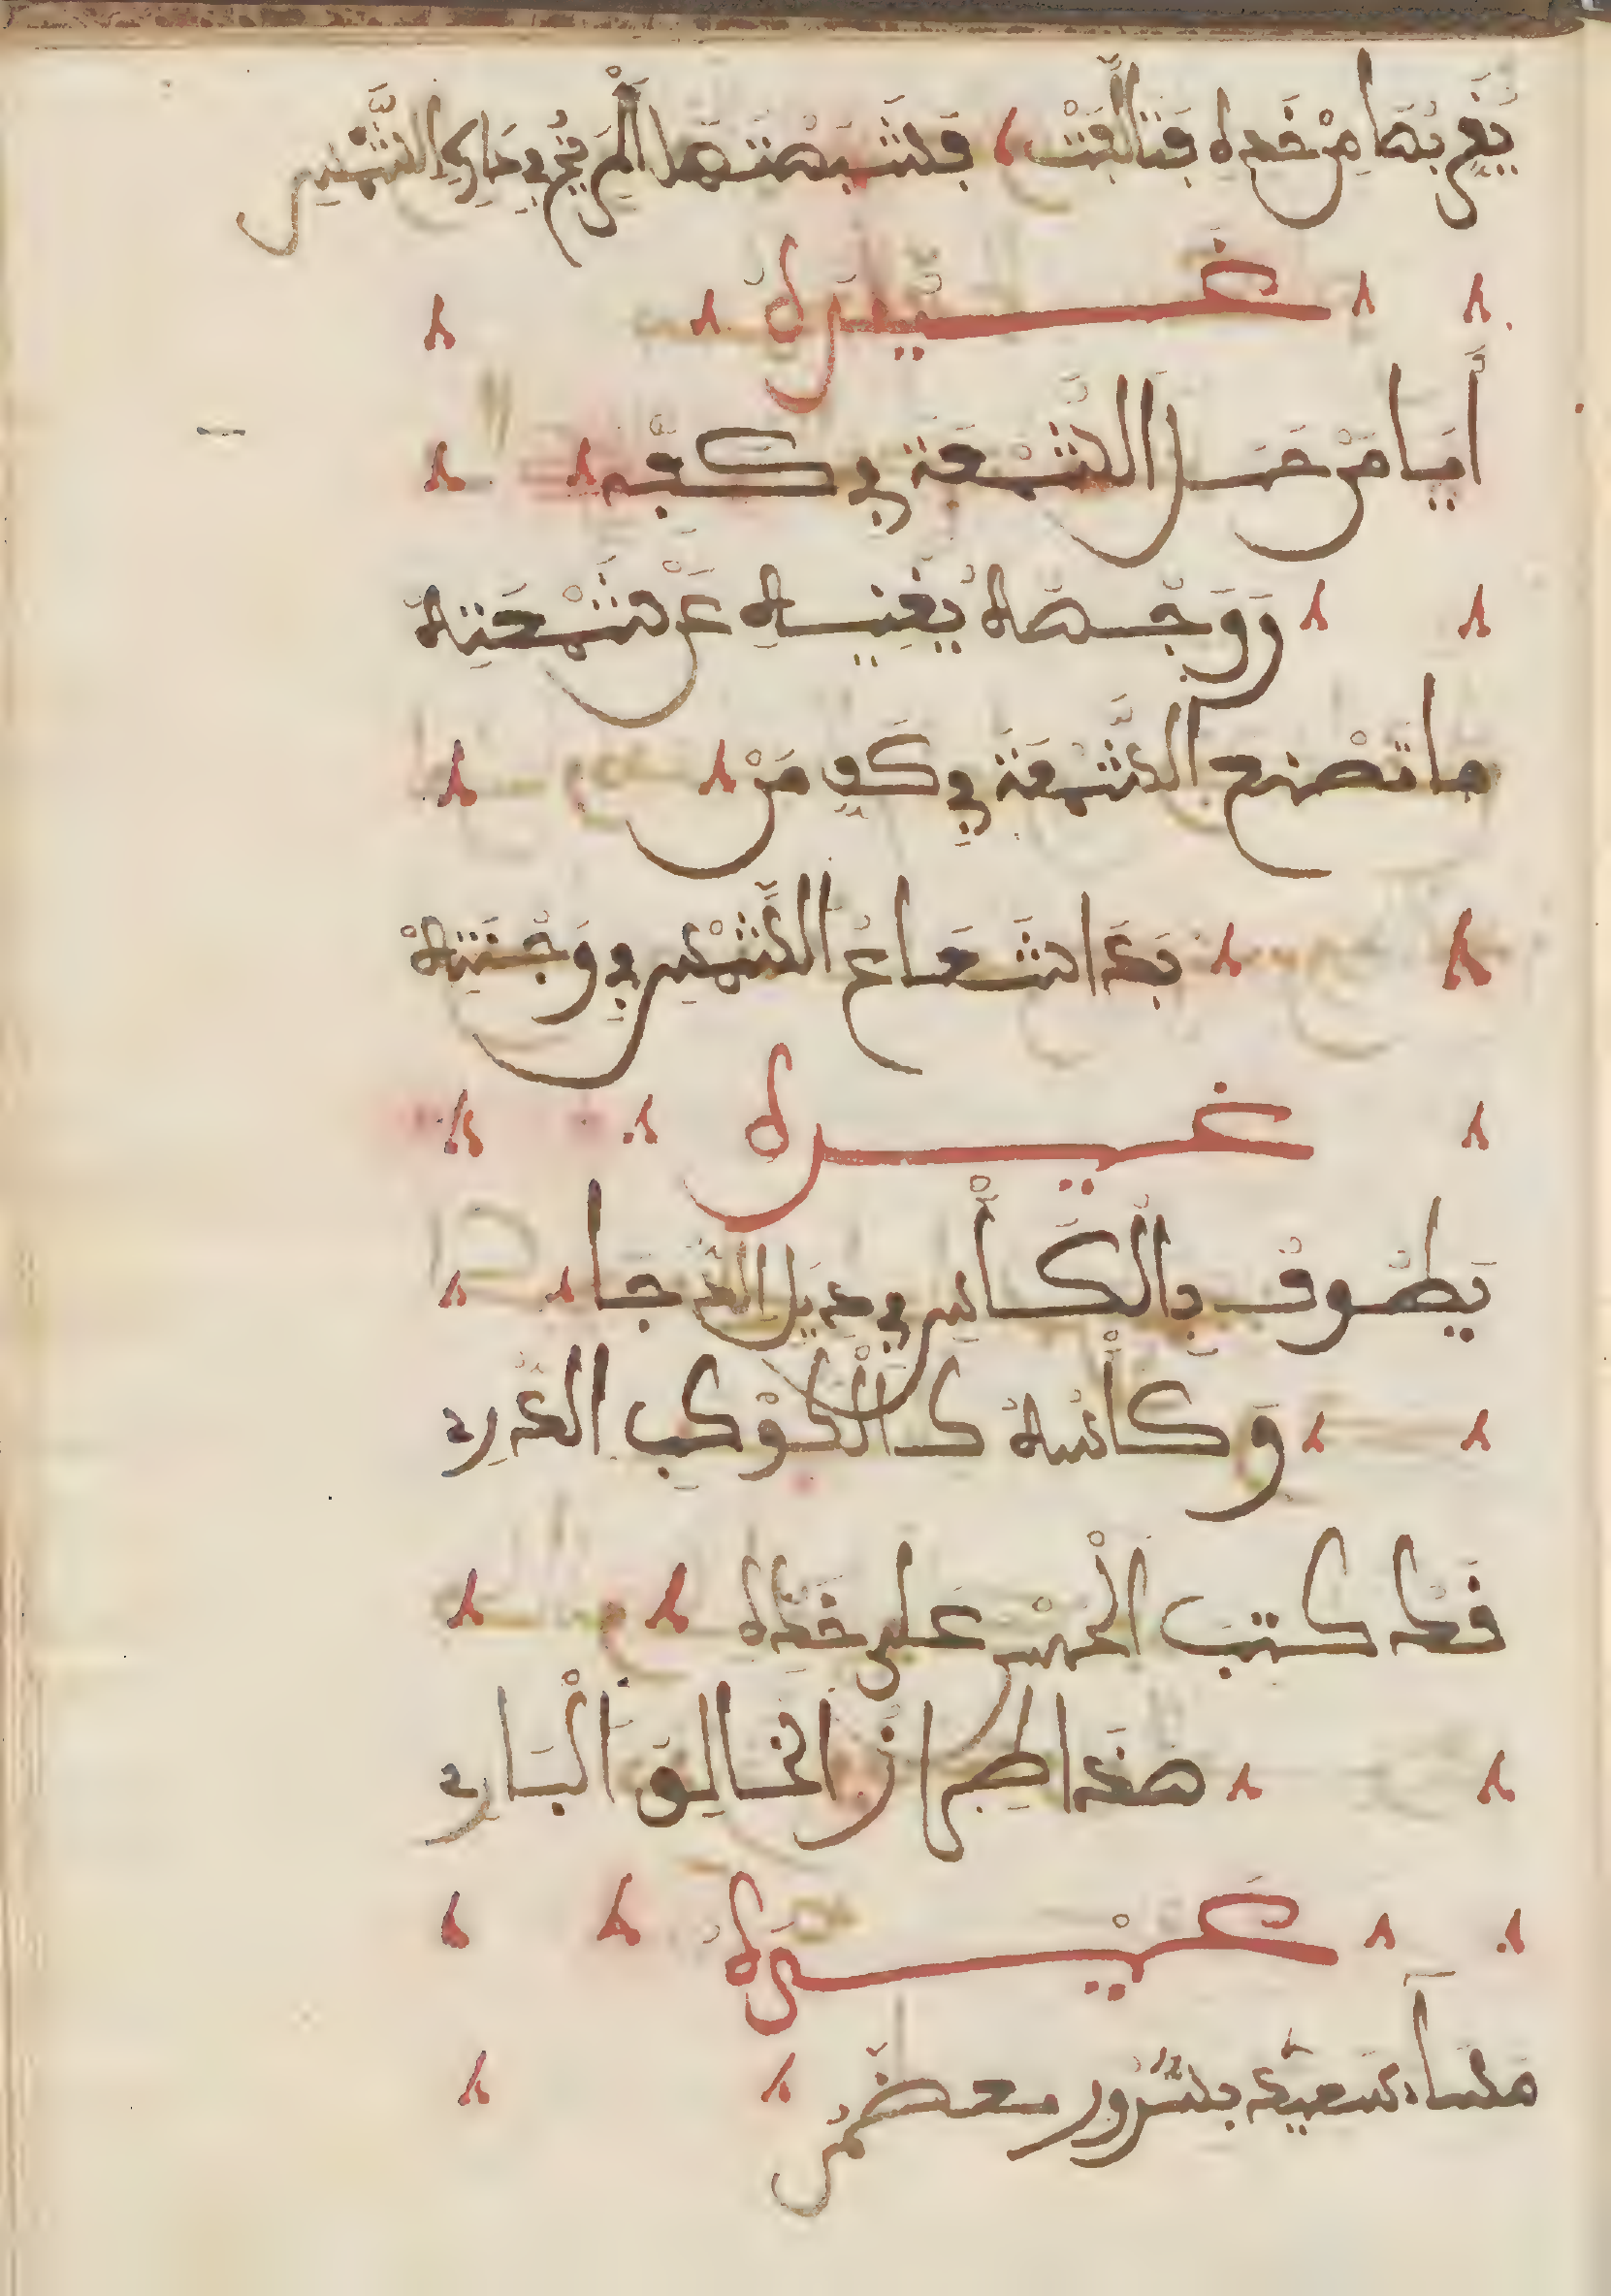 يُقَرِّبُهَا مِنْ خَدِّهِ فَتَأَلَّفَتْ فَشَبَّهْتُهَا الْمَرِّيخَ فِي دَارِهِ الشَّمْسِ
غيره
أَيَا مَنْ حَمَلَ الشَّمْعَةَ فِي كَفِّهِ
وَوَجْهُهُ يُغْنِيهِ عَنْ شَمْعَتِهِ
مَا تَصْنَعُ الشَّمْعَةُ فِي كَفِّ مَنْ
بَدَا شُعَاعُ الشَّمْسِ فِي وَجْنَتِهْ
غيره
يَطُوفُ بِالْكَأْسِ فِي ذَيْلِ الدُّجَا
وَكَأْسُهُ كَالْكَوْكَبِ الدُّرِّي
قَدْ كَتَبَ الْحُسْنُ عَلَى خَدِّهِ
هَذَا طِرَازُ الْخَالِقِ الْبَارِي
غَيْرُهُ
مَسَاء سَعِيد بِسُرُورٍ